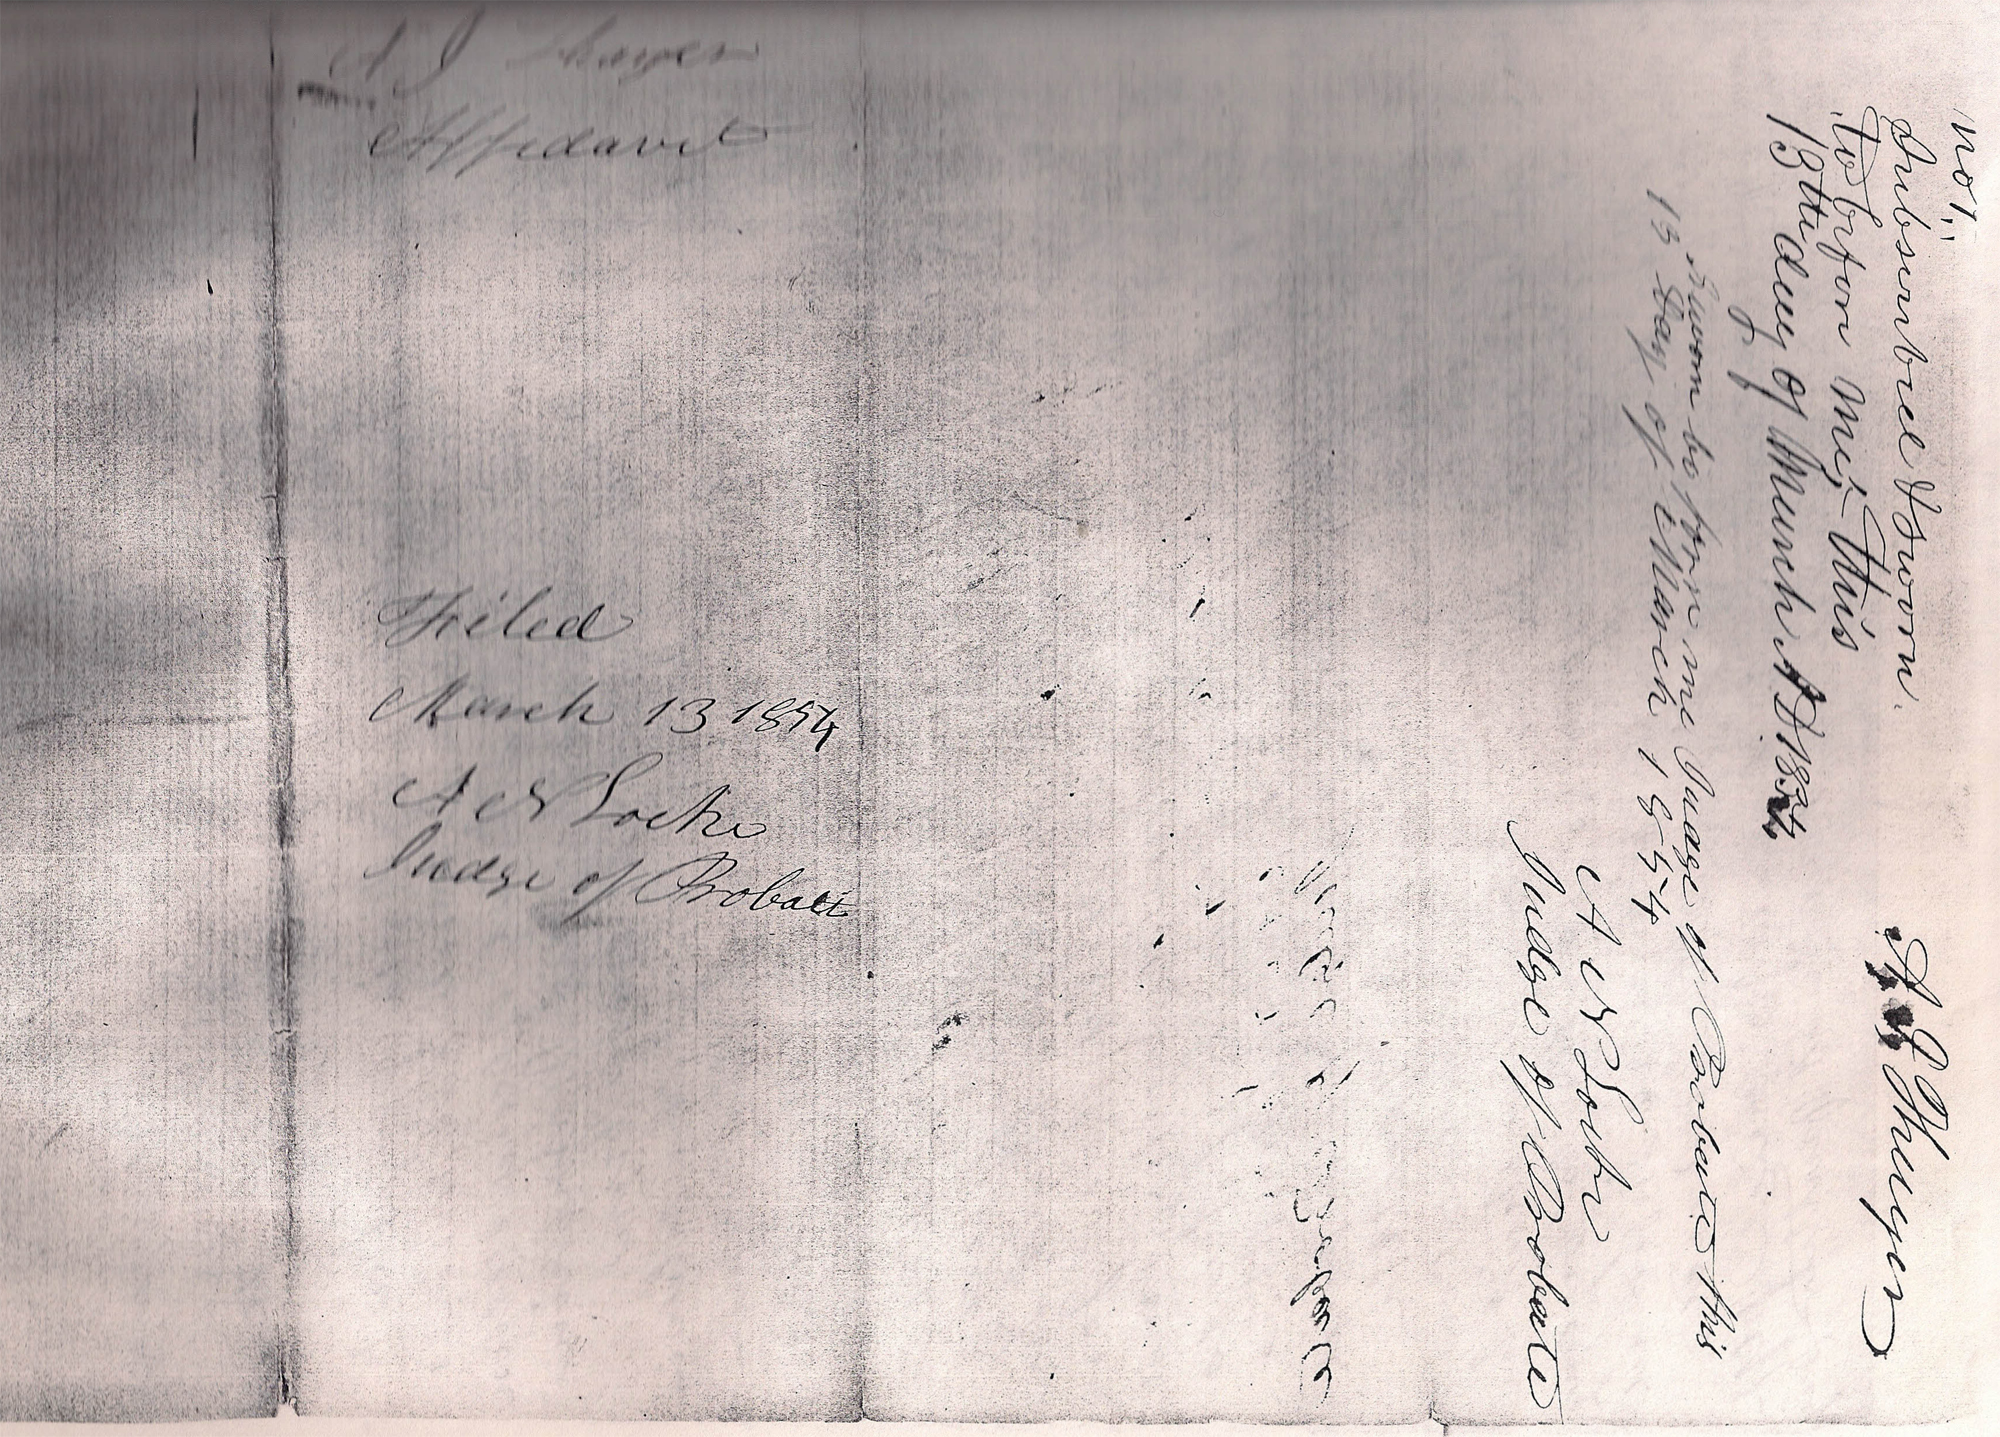 A J Thayer
Affidavit
Filed
March 13 1854
A N Locke
Judge of Probate
not.
Subscribed & Sworn.
to before me, this
13th day of March AD 1854
A J Thayer
Sworn to before me Judge of Probate this
13 Day of March 1854
A N Locke
Judge of Probate